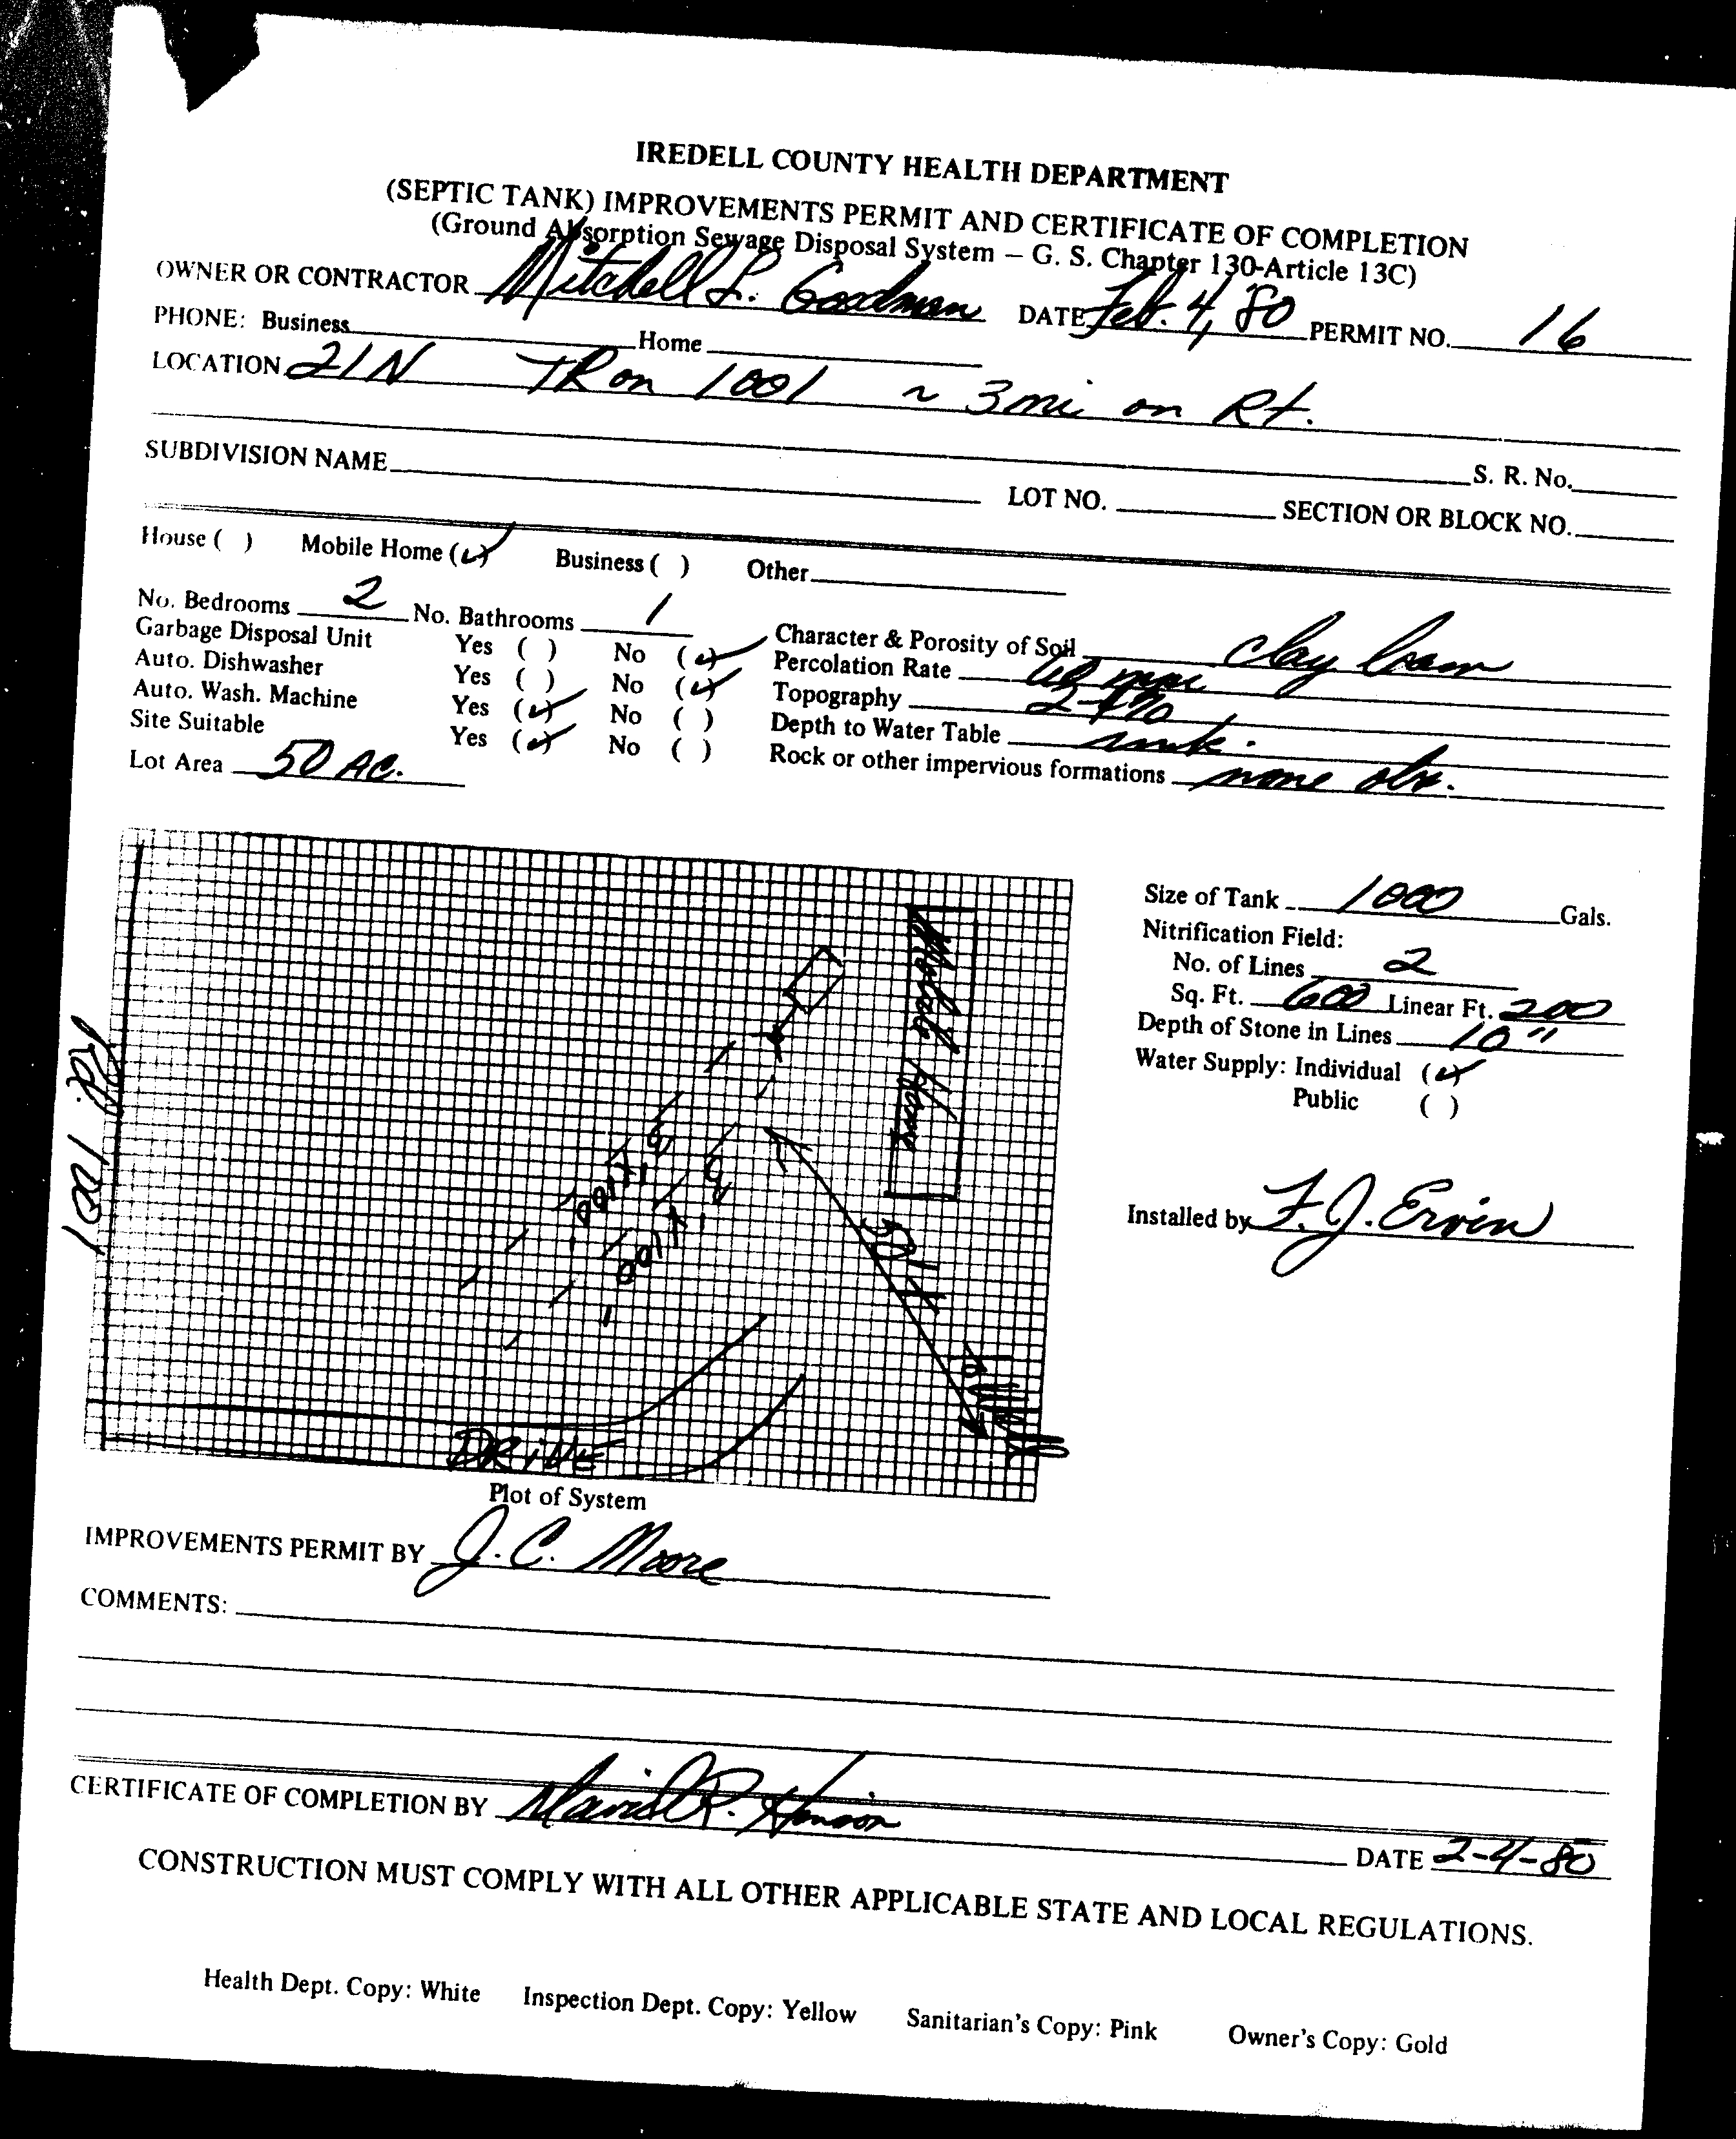 IREDELL COUNTY HEALTH DEPARTMENT
(SEPTIC TANK) IMPROVEMENTS PERMIT AND CERTIFICATE OF COMPLETION
(Ground Absorption Sewage Disposal System – G. S. Chapter 130-Article 13C)
OWNER OR CONTRACTOR Mitchell L. Goodman DATE Feb. 4, 80 PERMIT NO. 16
PHONE: Business Home
LOCATION 21N TR on 1001 ~ 3 mi on Rt.
S. R. No.
SUBDIVISION NAME LOT NO. SECTION OR BLOCK NO.
House ( ) Mobile Home (✓) Business ( ) Other
No. Bedrooms 2 No. Bathrooms 1 Character & Porosity of Soil clay loam
Garbage Disposal Unit Yes ( ) No (✓) Percolation Rate
Auto. Dishwasher Yes ( ) No (✓) Topography
Auto. Wash. Machine Yes (✓) No ( ) Depth to Water Table
Site Suitable Yes (✓) No ( ) Rock or other impervious formations none obs.
Lot Area 50 AC.
Size of Tank 1000 Gals.
Nitrification Field:
No. of Lines 2
Sq. Ft. 600 Linear Ft. 200
Depth of Stone in Lines 10"
Water Supply: Individual (✓)
Public ( )
Installed by F. J. Ervin
Mobile Home
1001 Rd.
3' x 100
3' x 100
50' +
Well
DRiVE
Plot of System
IMPROVEMENTS PERMIT BY J. C. Moore
COMMENTS:
CERTIFICATE OF COMPLETION BY David P. Henson
DATE 2-4-80
CONSTRUCTION MUST COMPLY WITH ALL OTHER APPLICABLE STATE AND LOCAL REGULATIONS.
Health Dept. Copy: White Inspection Dept. Copy: Yellow Sanitarian's Copy: Pink Owner's Copy: Gold